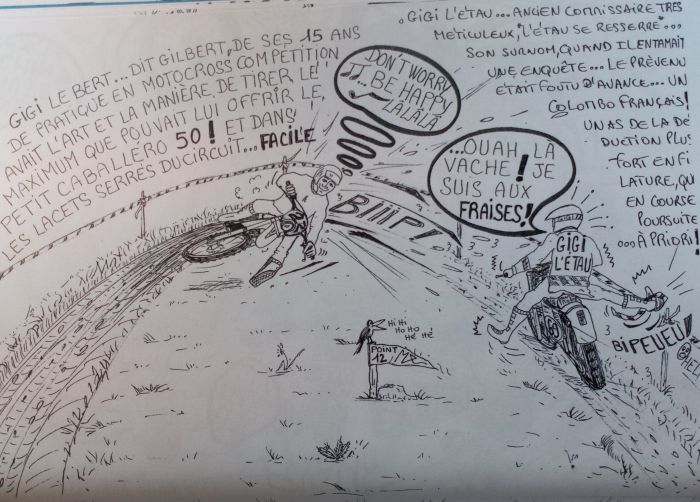 GIGI LE BERT... DIT GILBERT, DE SES 15 ANS
DE PRATIQUE EN MOTOCROSS COMPETITION
AVAIT L'ART ET LA MANIÈRE DE TIRER LE
MAXIMUM QUE POUVAIT LUI OFFRIR LE
PETIT CABALLÉRO 50! ET DANS
LES LACETS SERRÉS DU CIRCUIT... FACILE
DON'T WORRY
BE HAPPY
LALALÀ
GIGI L'ÉTAU... ANCIEN COMMISSAIRE TRES
METICULEUX, "L'ÉTAU SE RESSERRE"...
SON SURNOM, QUAND IL ENTAMAIT
UNE ENQUÊTE... LE PRÉVENU
ETAIT FOUTU D'AVANCE... UN
COLOMBO FRANÇAIS!
UN AS DE LA DÉ
DUCTION PLUS
FORT EN FI
LATURE, QUI
EN COURSE
POURSUITE
... À PRIORI!
...OUAH, LÀ
VACHE! JE
SUIS AUX
FRAISES!
BIIIP!
GIGI
L'ÉTAU
Hi Hi
Ho Ho
Hé Hé
POINT
12
BIPEUEU